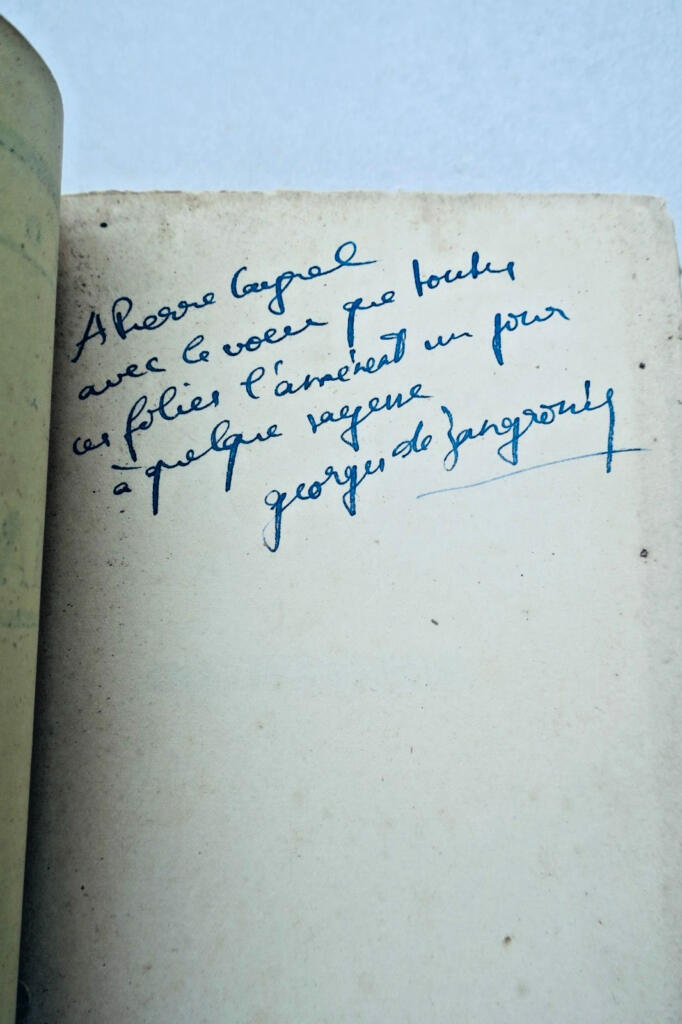 A Pierre Cayrel
avec le voeu que toutes
ces folies l'amènent un jour
à quelque sagesse
georges de Zangronis